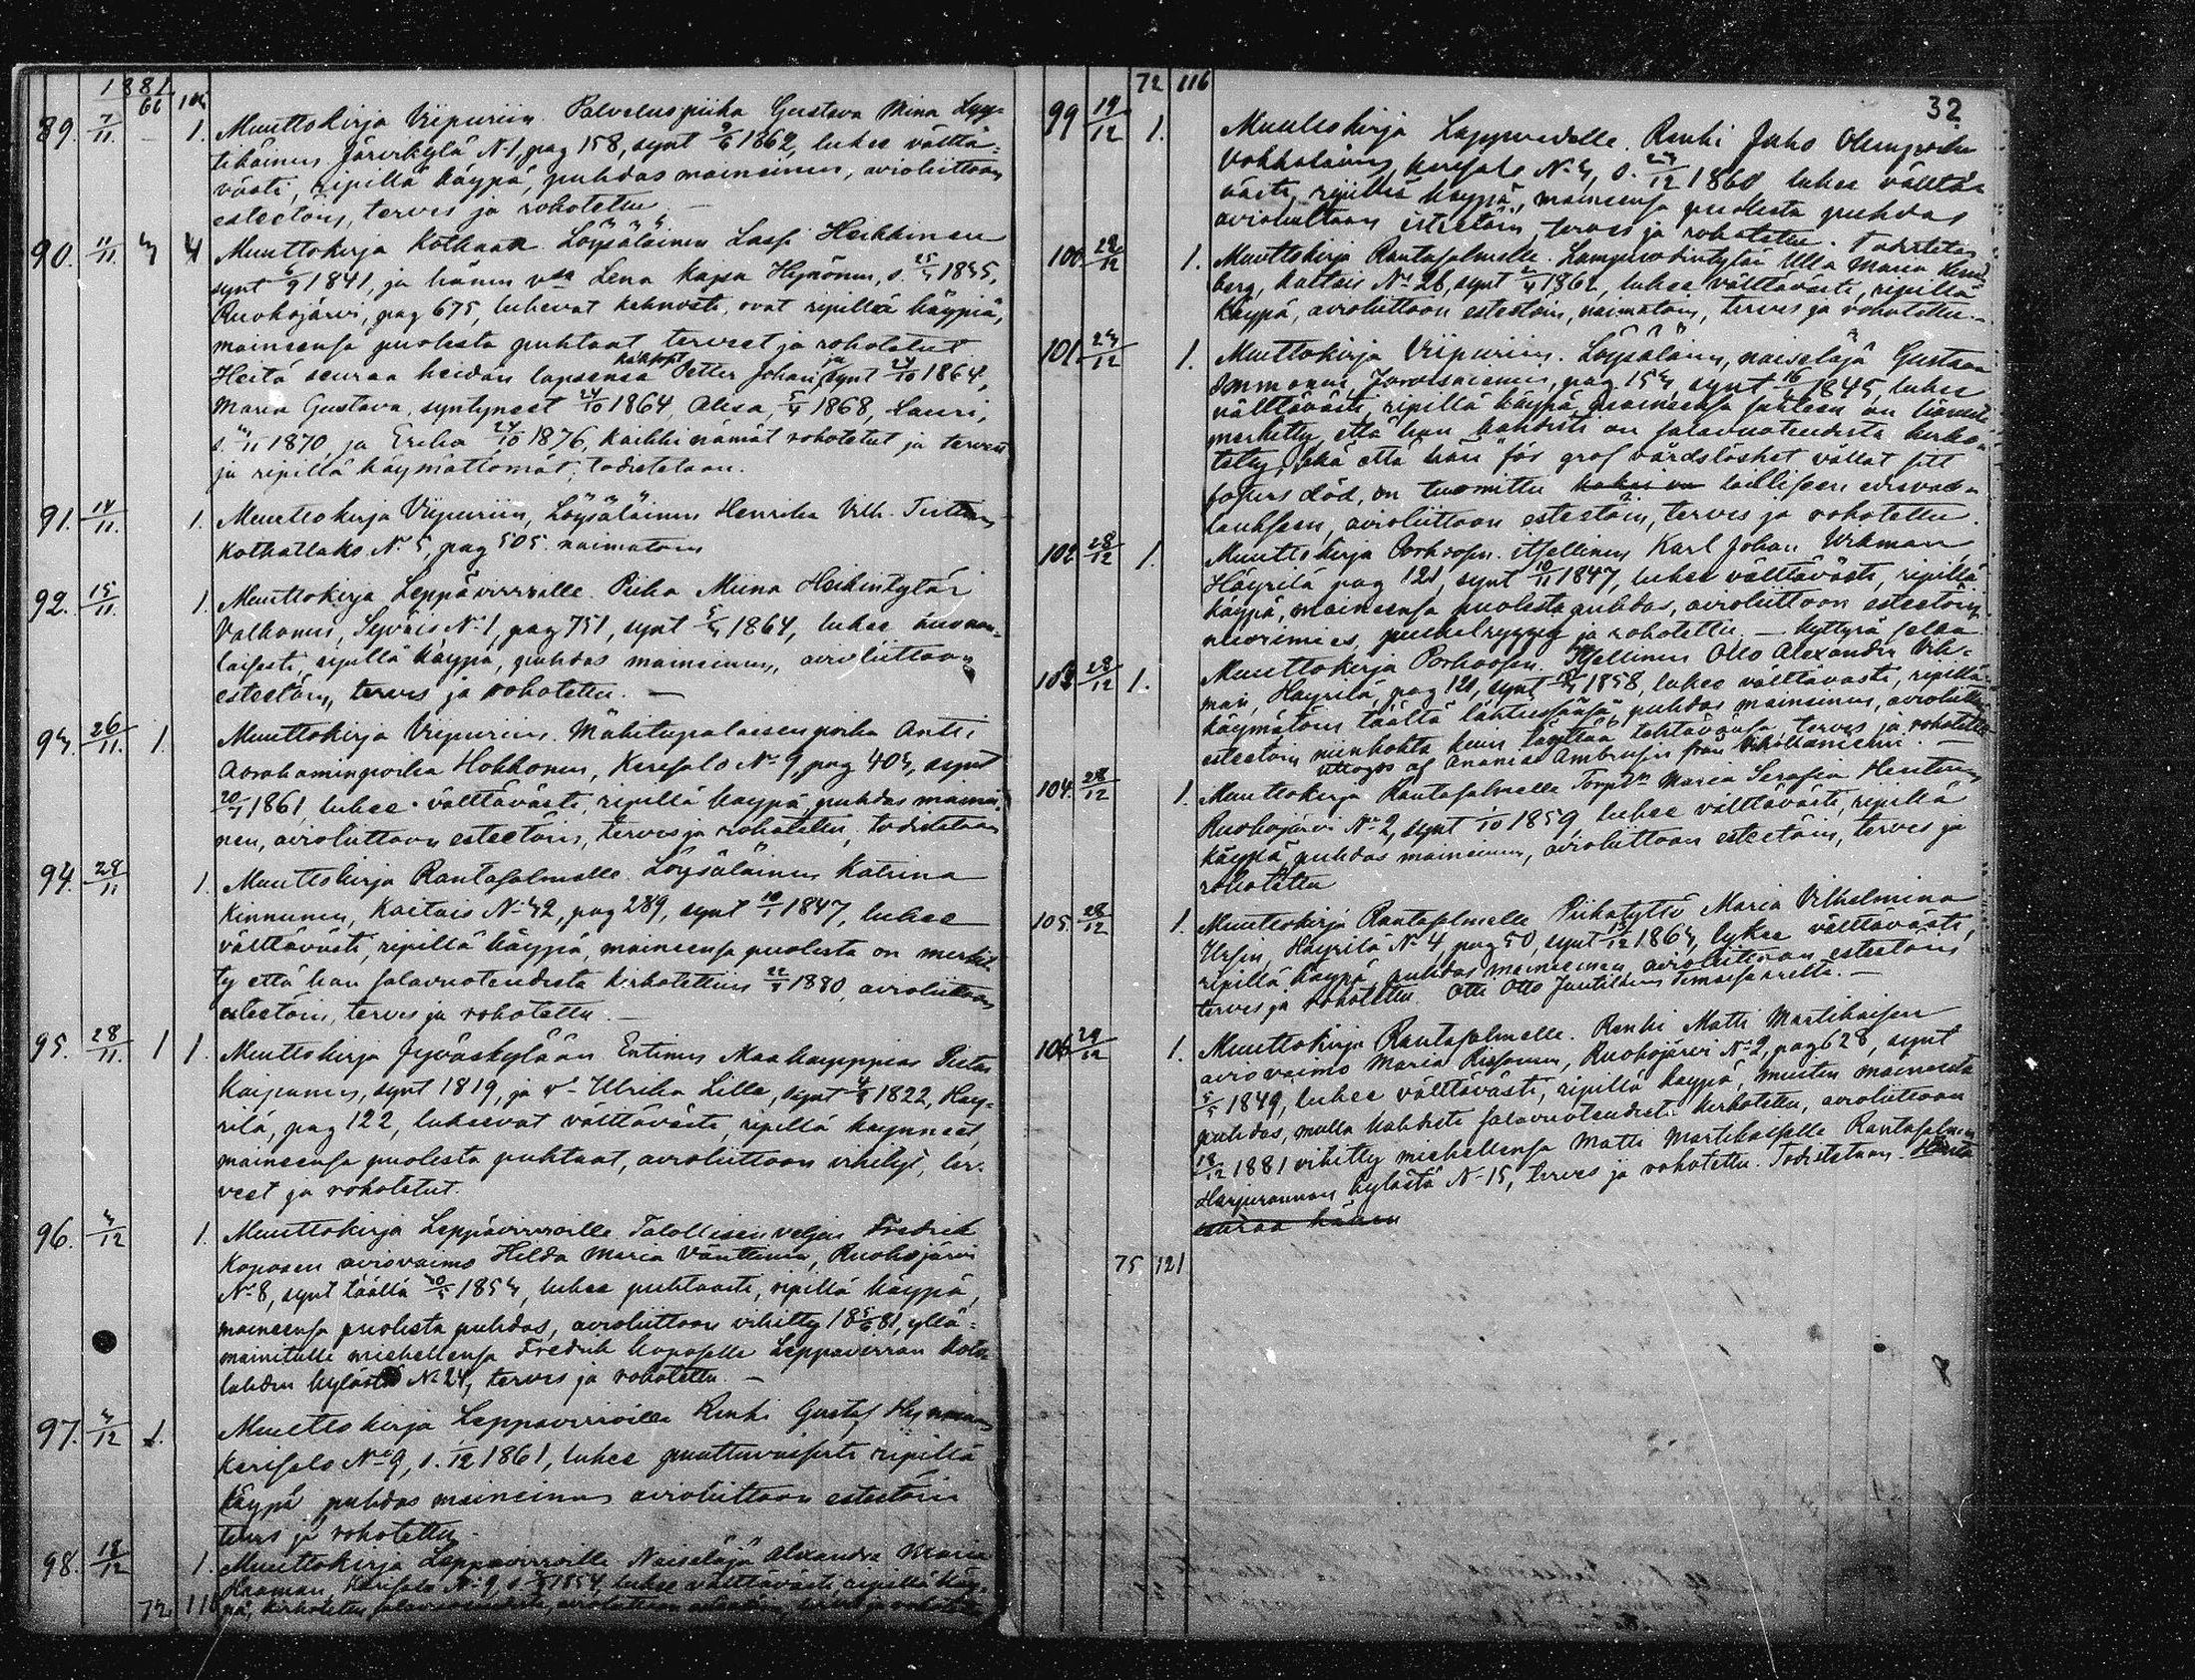 1881
66 104
89. 7/11. 1. Muuttokirja Viipuriin. Palveluspiika Gustava Mina Lyy-
tikäinen Järvikylä N:1, pag 158, synt 9/6 1862, lukee välttä-
västi, ripillä käypä, puhdas maineinen, avioliittoon
esteetöin, terves ja rokotettu. —
90. 11/11. 3 4 Muuttokirja Kotkaan Löysäläinen Lassi Heikkinen
synt 6/9 1841, ja hänen v:o Lena Kajsa Hynönen, s. 25/3 1835,
Ruokojärvi, pag 675, lukevat kehnosti, ovat ripillä käypiä,
maineensa puolesta puhtaat terveet ja rokotetut
Heitä seuraa heidän lapsensa Petter Johan ja synt 24/10 1864,
Maria Gustava, syntyneet 24/10 1864, Alisa, 5/4 1868, Lauri,
s. 3/11 1870, ja Erika 24/10 1876, kaikki nämät rokotetut ja terveet
ja ripillä käymättömät, todistetaan.
91. 14/11. 1. Muuttokirja Viipuriin, Löysäläinen Henrika Vilh. Tiittanen
Kotkatlaks N:5, pag 505. naimatoin
92. 15/11. 1. Muuttokirja Leppävirroille. Piika Miina Heikintytär
Valkonen, Seyväis N:1, pag 751, synt 5/3 1864, lukee
laisesti, ripillä käypä, puhdas maineinen, avioliittoon
esteetöin, terves ja rokotettu. —
93. 26/11. 1. Muuttokirja Viipuriin. Mäkitupalaisen poika Antti
Abrahaminpoika Hokkonen, Kerisalo N:o 9, pag 403, synt
20/1 1861, lukee välttävästi, ripillä käypä, puhdas mainei-
nen, avioliittoon esteetöin, terves ja rokotettu, todistetaan
94. 28/11 1. Muuttokirja Rantasalmelle. Löysäläinen Katrina
Kinnunen, Kaitais N:32, pag 289, synt 10/1 1847, lukee
välttävästi, ripillä käypä, maineensa puolesta on merkit-
ty että hän salavuoteudesta kirkotettiin 22/5 1880, avioliittoon
esteetöin, terves ja rokotettu. —
95. 28/11. 1 1. Muuttokirja Jyväskylään. Entinen Maakauppias Pietar
Kaipanen, synt 1819, ja v:o Ulrika Lille, synt 4/8 1822, Häy-
rilä, pag 122, lukeevat välttävästi, ripillä käynneet,
maineensa puolesta puhtaat, avioliittoon vihityt, ter-
veet ja rokotetut.
96. 3/12 1. Muuttokirja Leppävirroille Talollisen veljen Fredrik
Koposen aviovaimo Hilda Maria Vänttinen, Ruokojärvi
N:8, synt täällä 30/5 1853, lukee puhtaasti, ripillä käypä,
maineensa puolesta puhdas, avioliittoon vihitty 18 5/6 81, yllä-
mainitulle miehellensä Fredrik Koposelle Leppävirran Kota-
lahden kylästä N:24, terves ja rokotettu. —
97. 3/12 1. Muuttokirja Leppävirroille Renki Gustaf Hynönen
Kerisalo N:o 9, s. 1/12 1861, lukee puuttuvaisesti ripillä
käypä puhdas maineinen avioliittoon esteetöin
terves ja rokotettu. -
98. 18/12 1. Muuttokirja Leppävirroille Naiseläjä Alexandra Maria
Haaman, Kerisalo N:9, s. 1854, lukee välttävästi, ripillä käy-
pä, kirkotettu salavuoteudesta, avioliittoon esteetöin, terves ja rokotettu
72 116
72 116
32
99 19/12 1. Muuttokirja Lappveedelle. Renki Juho Oleinpoika
Vokkolainen, Kerisalo N:3, s. 23/12 1860 lukee välttä-
västi, ripillä käypä, maineensa puolesta puhdas
avioliittoon esteetöin, terves ja rokotettu. Todistetaan
100. 28/12 1. Muuttokirja Rantasalmelle. Lampuodintytär Ulla Maria
berg, Kaitais N:28, synt 2/4 1862, lukee välttävästi, ripillä
käypä, avioliittoon esteetöin, naimatoin, terves ja rokotettu. —
101. 23/12 1. Muuttokirja Viipuriin. Löysäläinen, naiseläjä Gustaava
Immonen, Joroisniemi, pag 153, synt 16/1 1845, lukee
välttävästi, ripillä käypä, maineensa suhteen on
merkitty, että hän kahdesti on salavuoteudesta kirko-
tettu, sekä että hän för grof vårdslöshet vållat sitt
fosters död, on tuomittu lailliseen edesvas-
taukseen, avioliittoon esteetöin, terves ja rokotettu.
102 28/12 1. Muuttokirja Porhoosen. itsellinen Karl Johan Vikman
Häyrilä pag 121, synt 10/11 1847, lukee välttävästi, ripillä
käypä, maineensa puolesta puhdas, avioliittoon esteetöin
nuorimies, puckelryggig ja rokotettu — Kyttyrä selkä
103 28/12 1. Muuttokirja Porhoosen. Itsellinen Otto Alexander Vik-
man, Häyrilä, pag 121, synt 1858, lukee välttävästi, ripillä
käymätöin täältä lähteissänsä, puhdas maineinen, avioliittoon
esteetöin niinkohta kuin täyttää tehtävänsä, terves ja rokotettu
uttogos af Ananias Ambrusin från —
104. 28/12 1. Muuttokirja Rantasalmelle Torp v:o Maria Serafia Hentinen
Ruokojärvi N:o 2, synt 1/10 1859 lukee välttävästi, ripillä
käypä, puhdas maineinen, avioliittoon esteetöin, terves ja
rokotettu
105. 28/12 1. Muuttokirja Rantasalmelle Piikatyttö Maria Vilhelmina
Ursin, Häyrilä N:o 4, pag 50, synt 13/12 1863, lukee välttävästi,
ripillä käypä, puhdas maineinen, avioliittoon esteetöin
terves ja rokotettu. Otti Otto Juutilainen —
106 29/12 1. Muuttokirja Rantasalmelle. Renki Matti Martikaisen
aviovaimo Maria Rissanen, Ruokojärvi N:o 2, pag 628, synt
5/5 1849, lukee välttävästi, ripillä käypä, muuten maineesta
puhdas, mutta kahdesti salavuoteudesta kirkotettu, avioliittoon
18/12 1881 vihitty miehellensä Matti Martikaiselle Rantasalmen
Harjurannan kylästä N:15, terves ja rokotettu. Todistetaan. Häntä
seuraa hänen
75 121